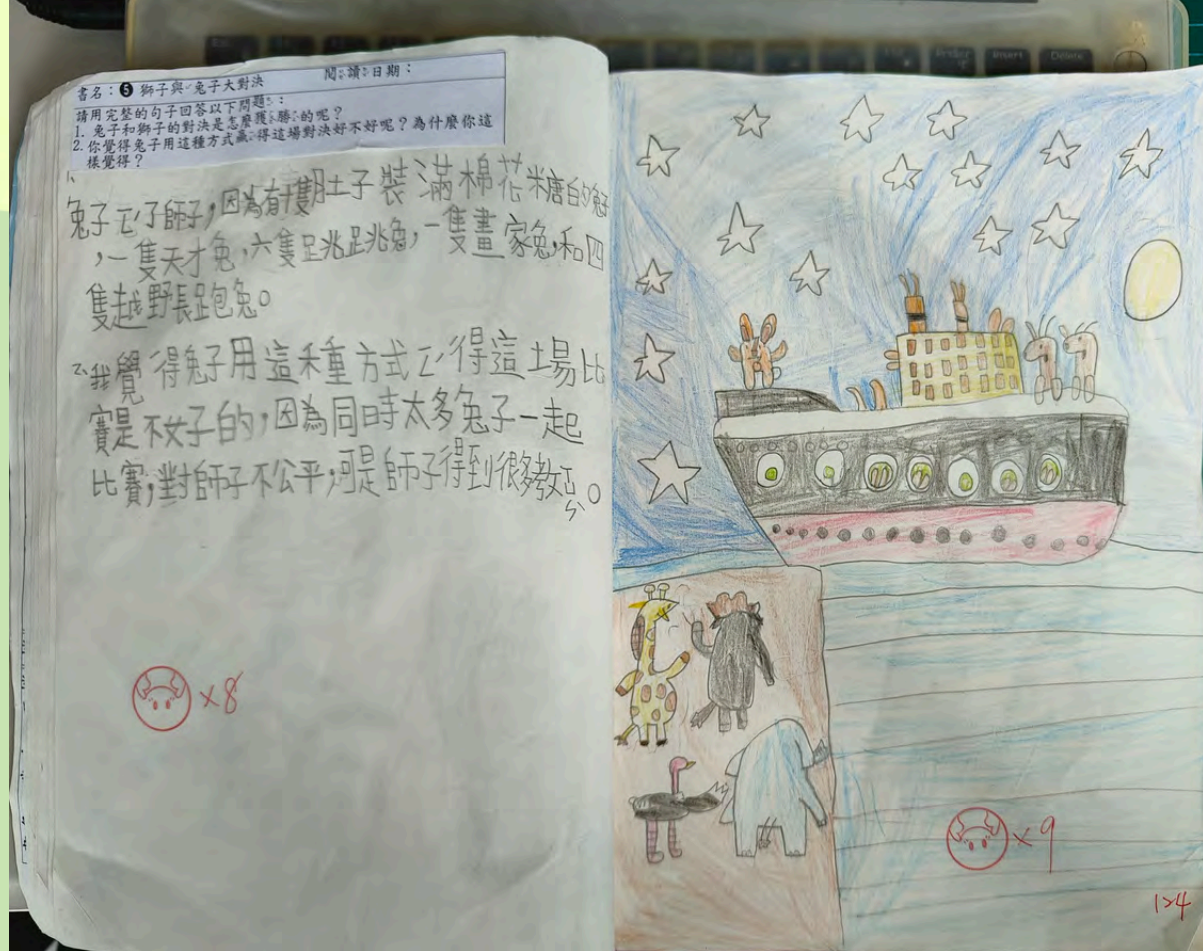 書名：❺ 獅子與兔子大對決 閱讀日期：
請用完整的句子回答以下問題：
1. 兔子和獅子的對決是怎麼獲勝的呢？
2. 你覺得兔子用這種方式贏得這場對決好不好呢？為什麼你這
樣覺得？
1、
兔子ㄧㄥˊ了師子，因為有十隻肚子裝滿棉花米唐白的兔子
，一隻天才兔，六隻跳跳兔，一隻畫家兔，和四
隻越野長跑兔。
2、我覺得兔子用這種方式ㄧㄥˊ得這場比
賽是不好的，因為同時太多兔子一起
比賽，對師子不公平，可是師子得到很多教
×8
×9
124